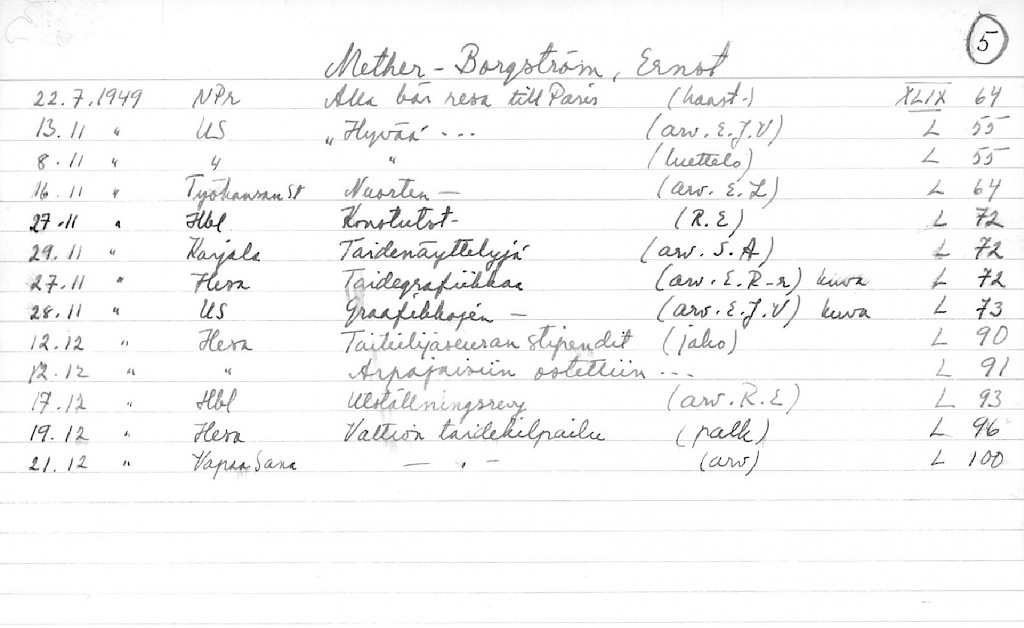 5
Mether-Borgström, Ernst
22.7.1949 NPr Alla bär resa till Paris (haast.) XLIX 64
13.11 " US „Hyvää" --- (arv. E.J.V) L 55
8.11 " " " (luettelo) L 55
16.11 " Työkansan St Nuorten — (arv. E.L) L 64
27.11 " Hbl Konstutst- (R.E) L 72
29.11 " Karjala Taidenäyttelyjä (arv. S.A) L 72
27.11 " Hesa Taidegrafiikkaa (arv. E.R-r) kuva L 72
28.11 " US Graafikkojen — (arv. E.J.V) kuva L 73
12.12 " Hesa Taiteilijaseuran stipendit (jako) L 90
12.12 " " Arpajaisiin ostettiin --- L 91
17.12 " Hbl Utställningsrevy (arv. R.E) L 93
19.12 " Hesa Valtion taidekilpailu (palk) L 96
21.12 " Vapaa Sana — " — (arv) L 100